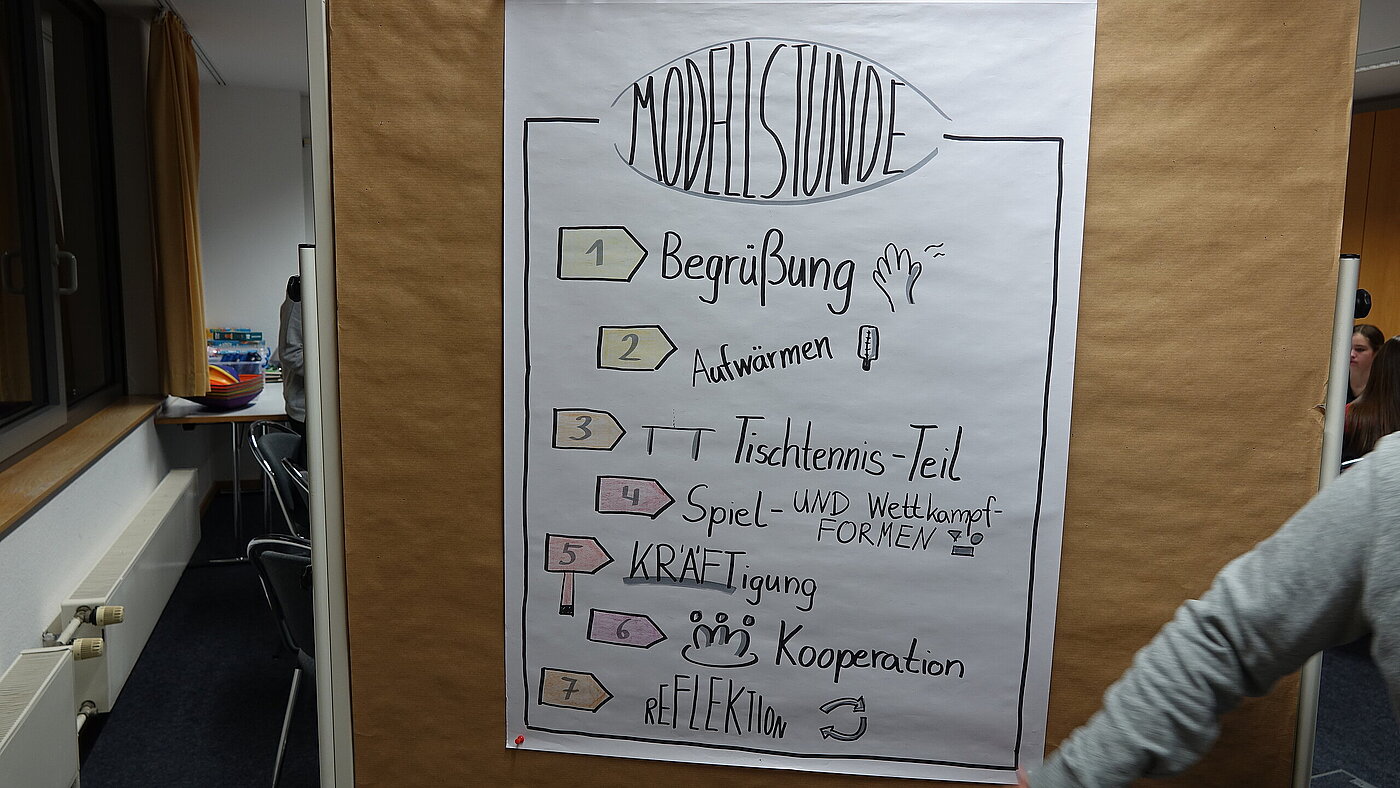 MODELLSTUNDE
1 Begrüßung
2 Aufwärmen
3 Tischtennis-Teil
4 Spiel- UND Wettkampf-
FORMEN
5 KRÄFTigung
6 Kooperation
7 REFLEKTION